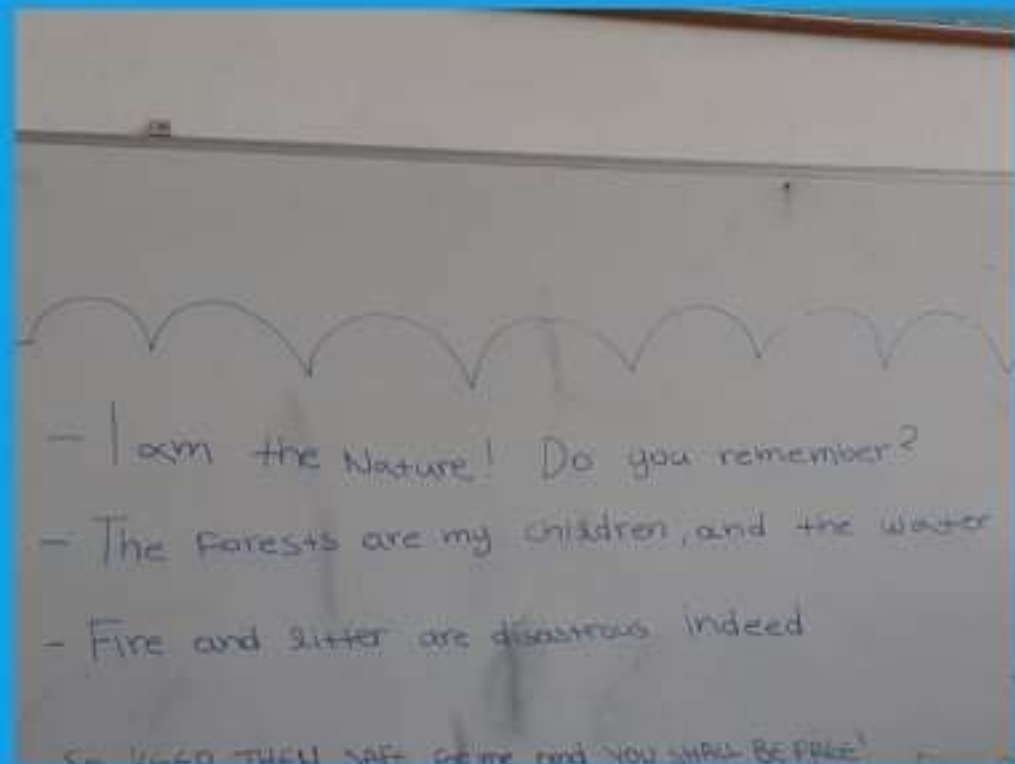 - I am the Nature! Do you remember?
- The forests are my children, and the water
- Fire and litter are disastrous indeed
So KEEP THEM SAFE for me and YOU SHALL BE FREE!